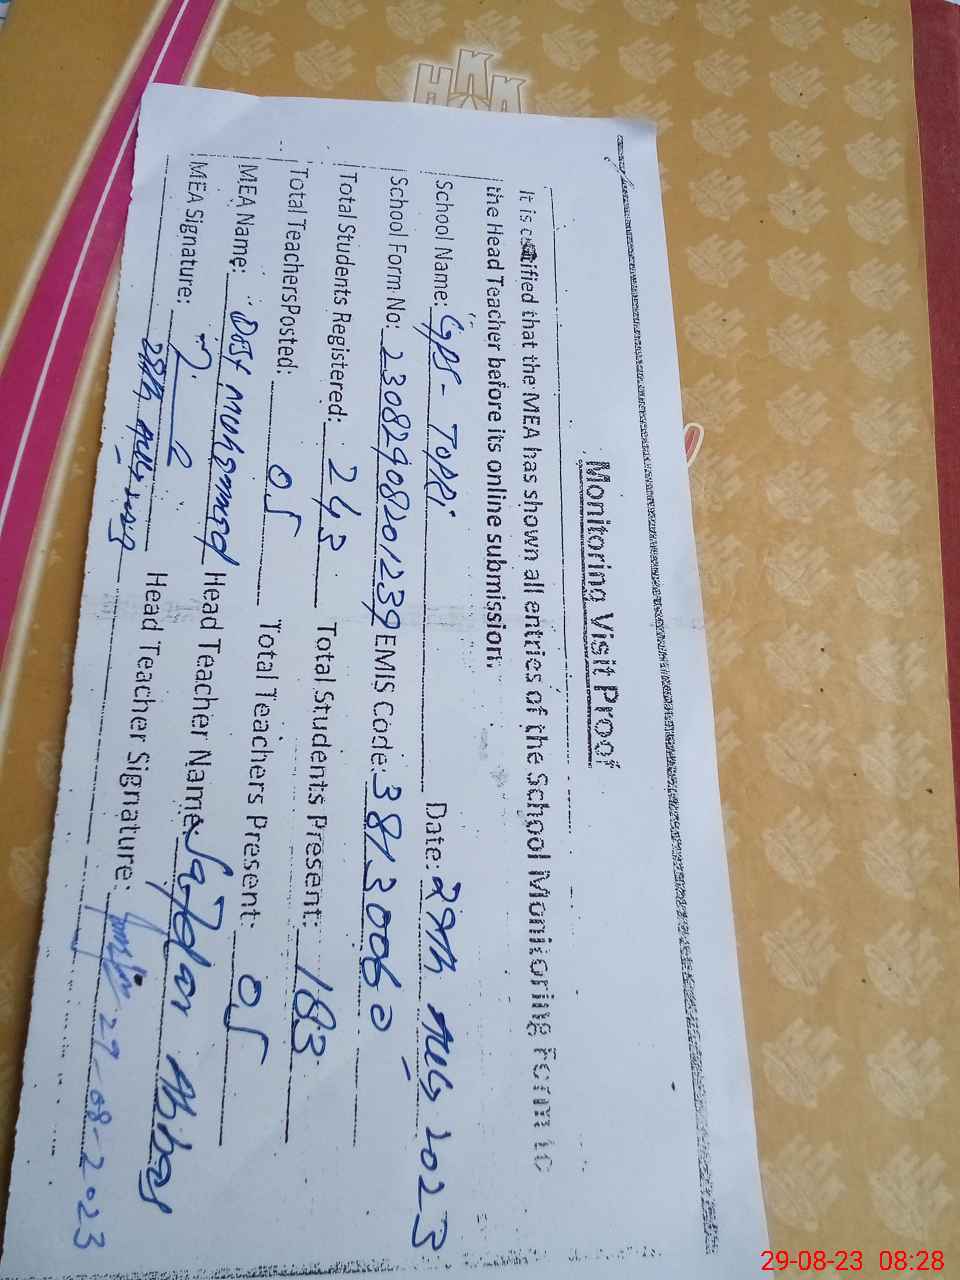 Monitoring Visit Proof
It is certified that the MEA has shown all entries of the School Monitoring Form to
the Head Teacher before its online submission.
School Name: GPS - TOPRI Date: 29th Aug 2023
School Form No: 23082908201239 EMIS Code: 38130060
Total Students Registered: 243 Total Students Present: 183
Total Teachers Posted: 05 Total Teachers Present: 05
MEA Name: Dost Muhammad Head Teacher Name: Sajdar Abbas
MEA Signature: Head Teacher Signature:
29th Aug 2023 29-08-2023
HKKA
29-08-23 08:28